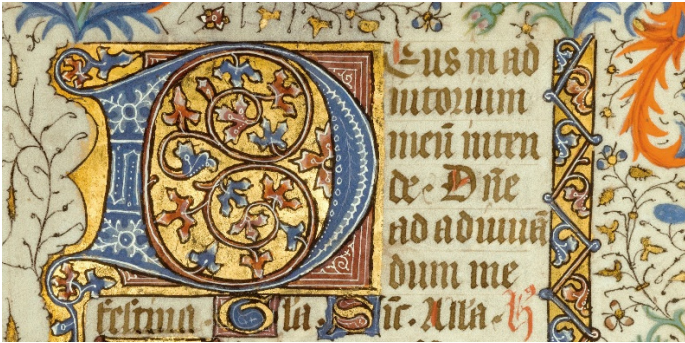 DEus in ad
iutorium
meū inten
de· Dñe
ad adiuuā
dum me
festina· Gla· Sic̄· Alla·